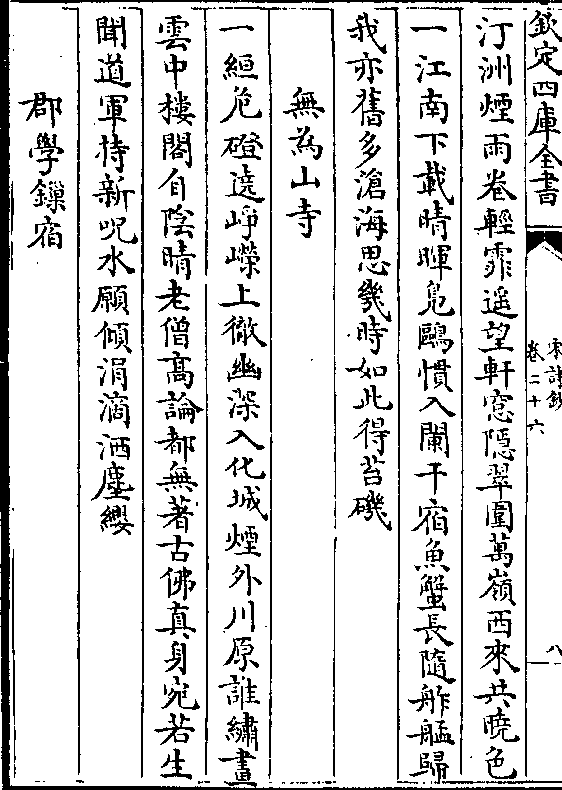 欽定四庫全書
宋詩鈔
卷二十六
八
汀洲煙雨卷輕霏遥望軒窓隠翠圍萬嶺西來共曉色
一江南下載晴暉鳬鷗慣入闌干宿魚蟹長隨舴艋歸
我亦舊多滄海思幾時如此得苔磯
無為山寺
一絙危磴遶峥嶸上徹幽深入化城煙外川原誰繡畫
雲中樓閣自陰晴老僧髙論都無著古佛真身宛若生
聞道軍持新呪水願傾涓滴洒塵纓
郡學鏁宿